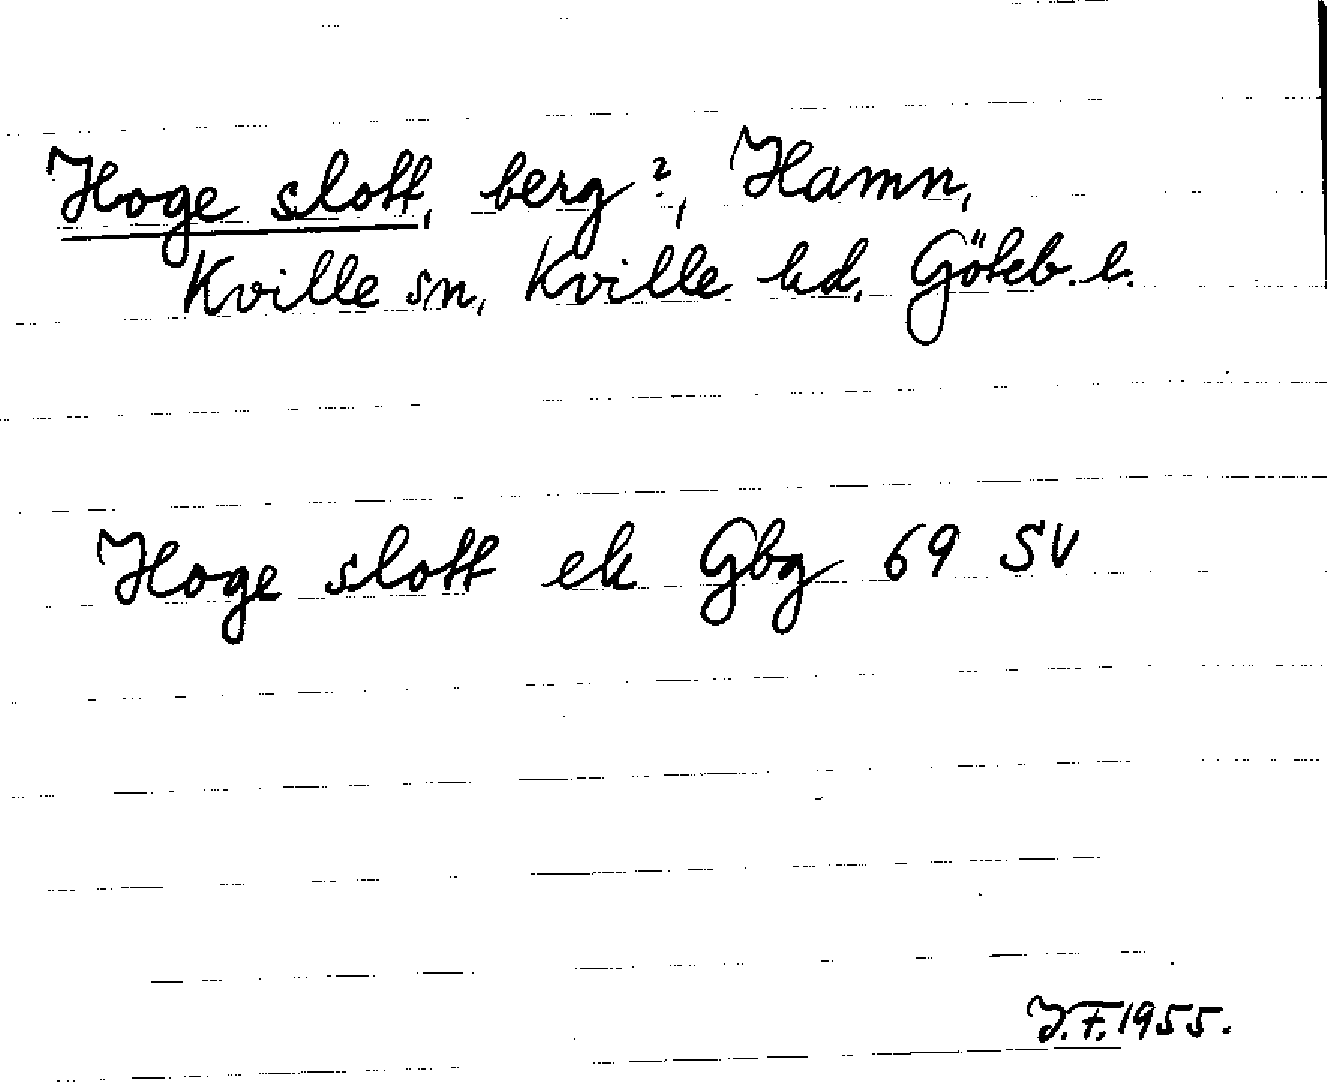 Hoge slott, berg?, Hamn,
Kville sn, Kville hd, Göteb. l.
Hoge slott ek Gbg 69 SV
J.F. 1955.